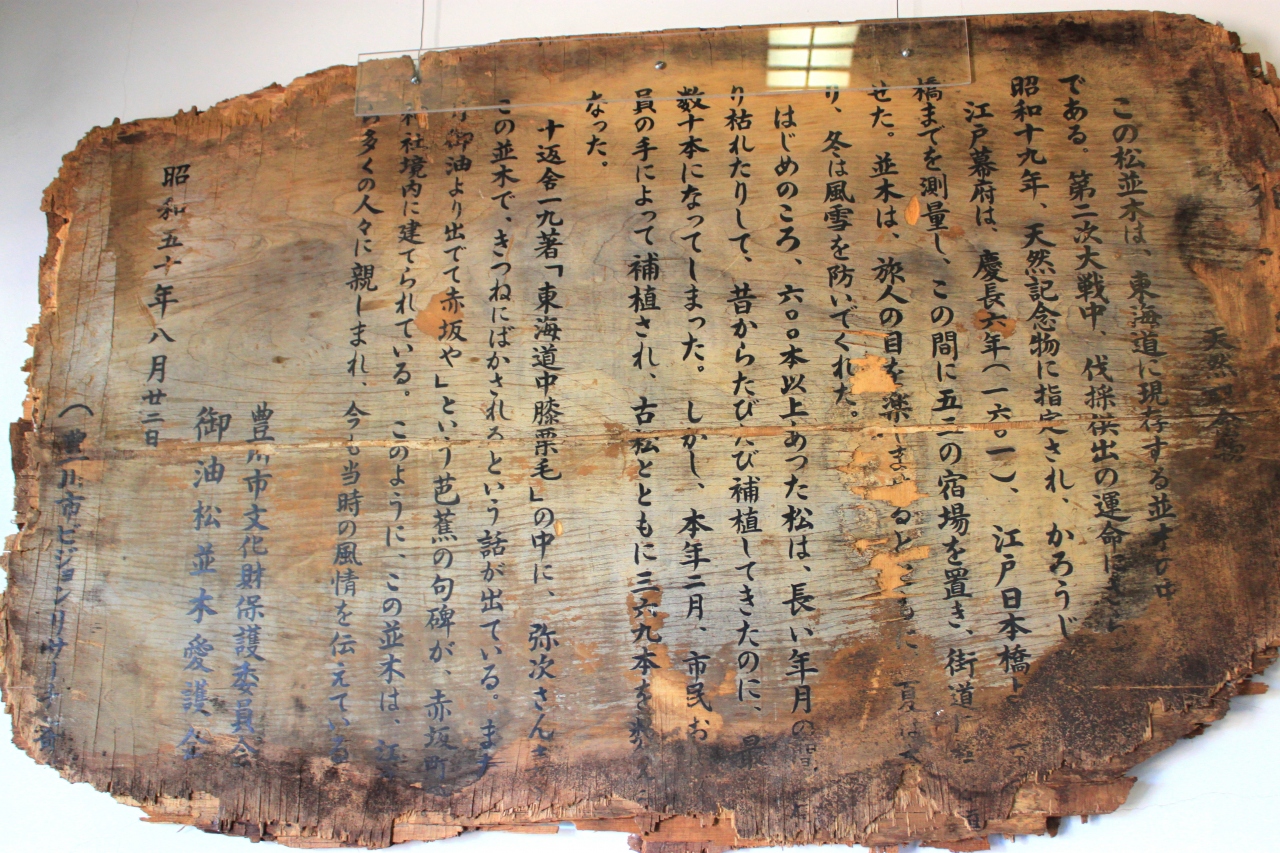 天然記念物
この松並木は、東海道に現存する並木の中
である。第二次大戦中、伐採供出の運命に
昭和十九年、天然記念物に指定され、かろうじ
江戸幕府は、慶長六年(一六〇一)、江戸日本橋
橋までを測量し、この間に五三の宿場を置き、街道に
せた。並木は、旅人の目を楽しませるとともに、夏は
り、冬は風雪を防いでくれた。
はじめのころ、六〇〇本以上あった松は、長い年月の間
り枯れたりして、昔からたびたび補植してきたのに、最
数十本になってしまった。しかし、本年二月、市民お
員の手によって補植され、古松とともに三六九本を数え
なった。
十返舎一九著「東海道中膝栗毛」の中に、弥次さんき
この並木で、きつねにばかされるという話が出ている。また
り御油より出でて赤坂や」という芭蕉の句碑が、赤坂町
社境内に建てられている。このように、この並木は、江
ら多くの人々に親しまれ、今も当時の風情を伝えている
昭和五十年八月廿二日
豊川市文化財保護委員会
御油松並木愛護会
(豊川市ビジョンリサーチ